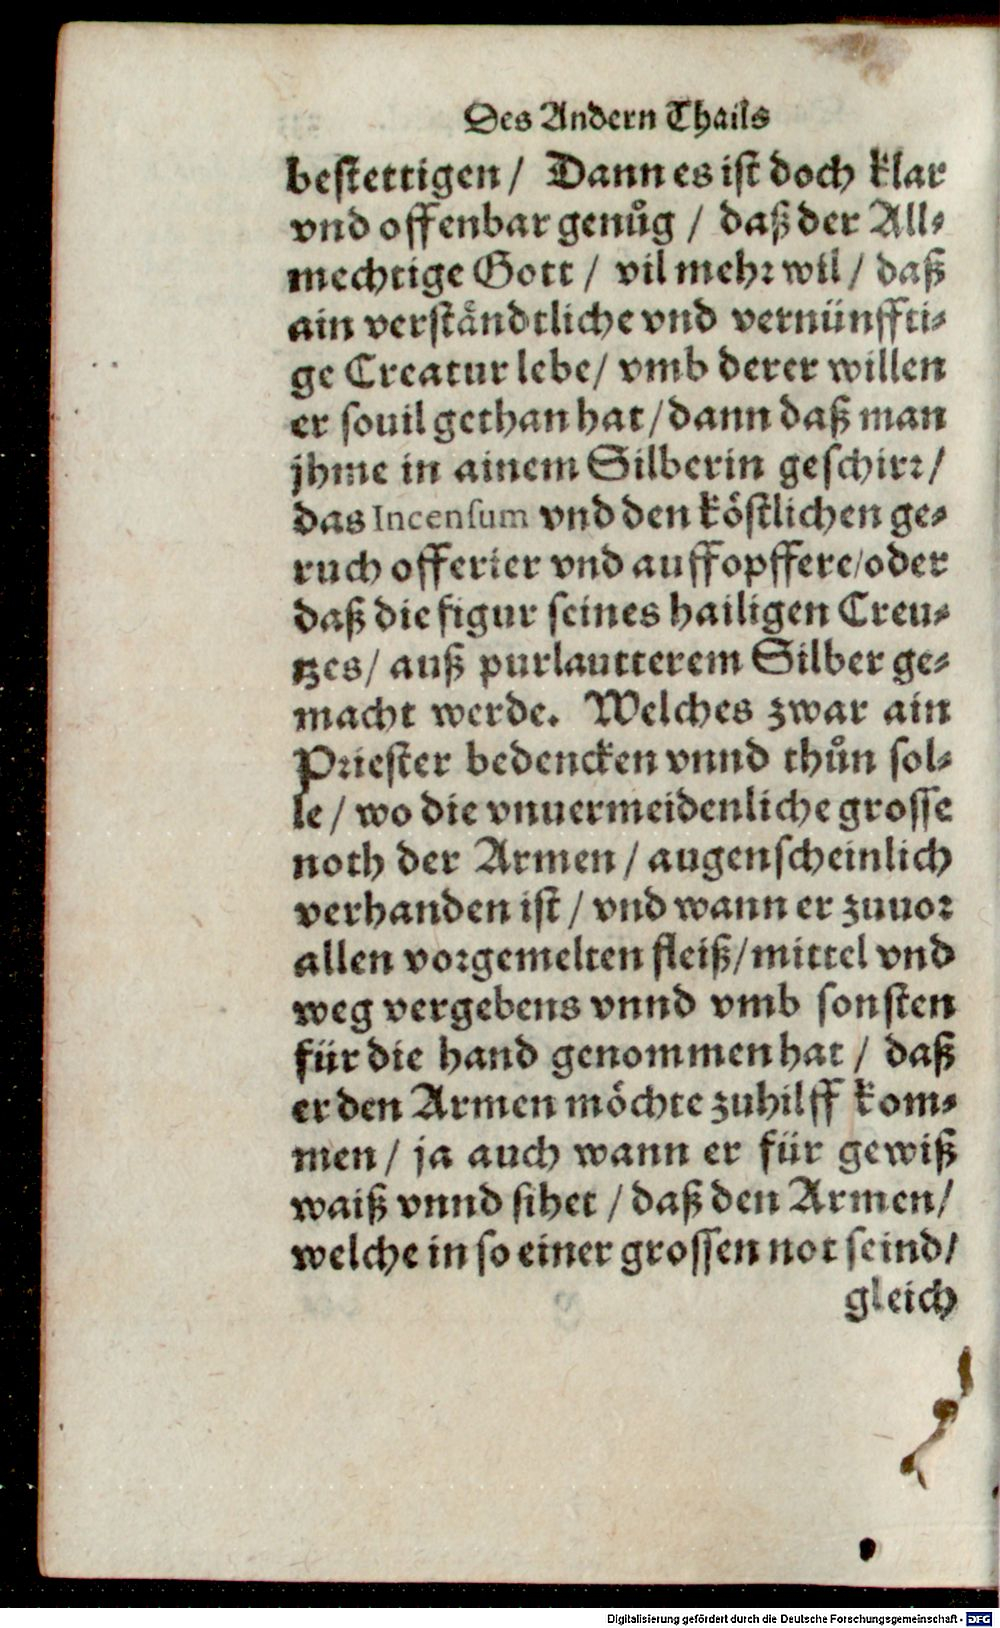 Des Andern Thails
bestettigen / Dann es ist doch klar
vnd offenbar genůg / daß der All-
mechtige Gott / vil mehr wil / daß
ain verständtliche vnd vernünffti-
ge Creatur lebe / vmb derer willen
er souil gethan hat / dann daß man
jhme in ainem Silberin geschirr /
das Incensum vnd den köstlichen ge-
ruch offerier vnd auffopffere / oder
daß die figur seines hailigen Creu-
tzes / auß purlautterem Silber ge-
macht werde. Welches zwar ain
Priester bedencken vnnd thůn sol-
le / wo die vnuermeidenliche grosse
noth der Armen / augenscheinlich
verhanden ist / vnd wann er zuuor
allen vorgemelten fleiß / mittel vnd
weg vergebens vnnd vmb sonsten
für die hand genommen hat / daß
er den Armen möchte zuhilff kom-
men / ja auch wann er für gewiß
waiß vnnd sihet / daß den Armen /
welche in so einer grossen not seind /
gleich
Digitalisierung gefördert durch die Deutsche Forschungsgemeinschaft - DFG